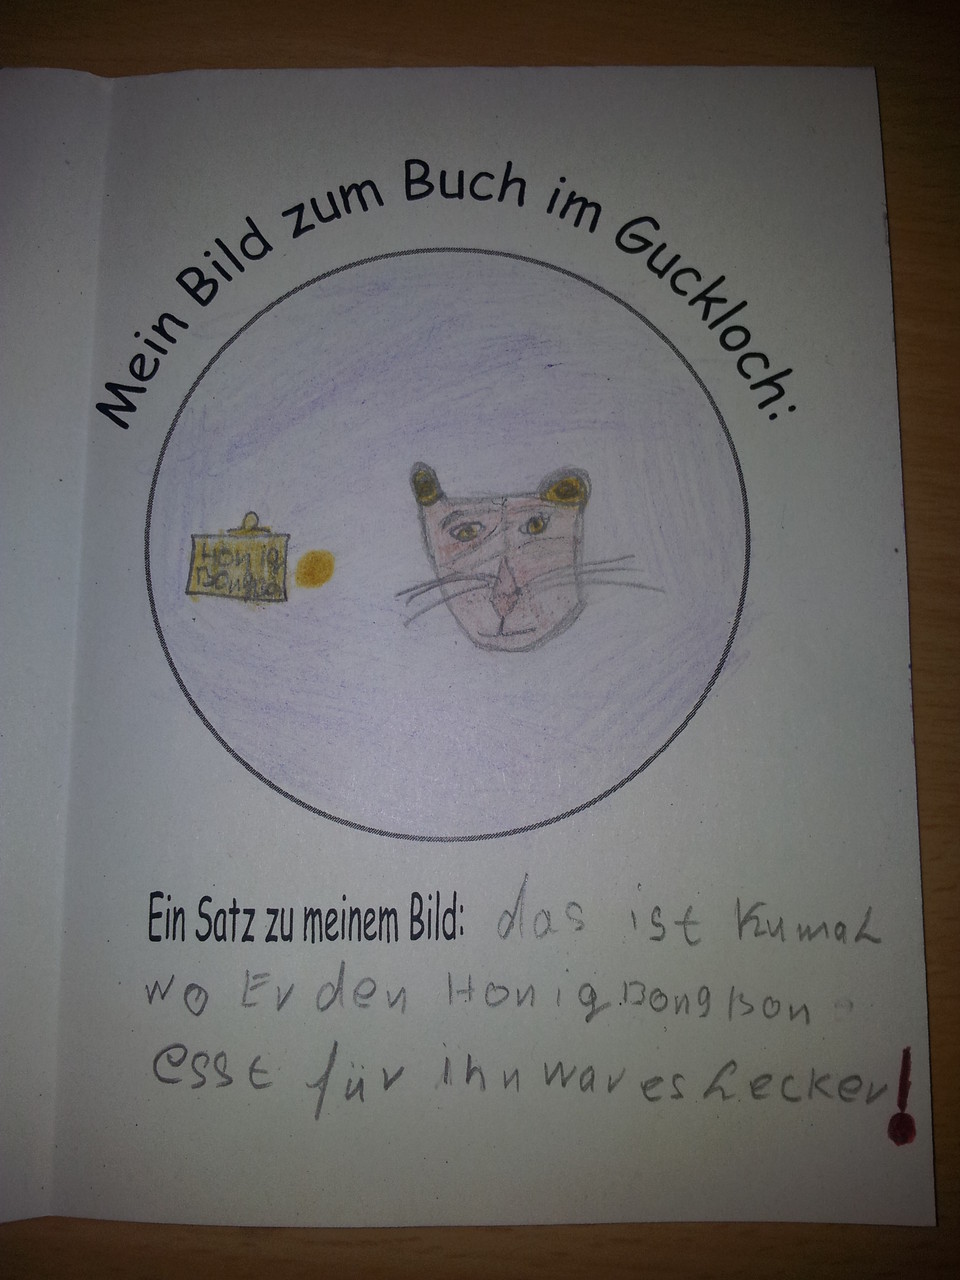 Mein Bild zum Buch im Guckloch:
Honig
Ein Satz zu meinem Bild: das ist Kumal
wo Er den Honig Bong Bon
esst für ihn war es Lecker!